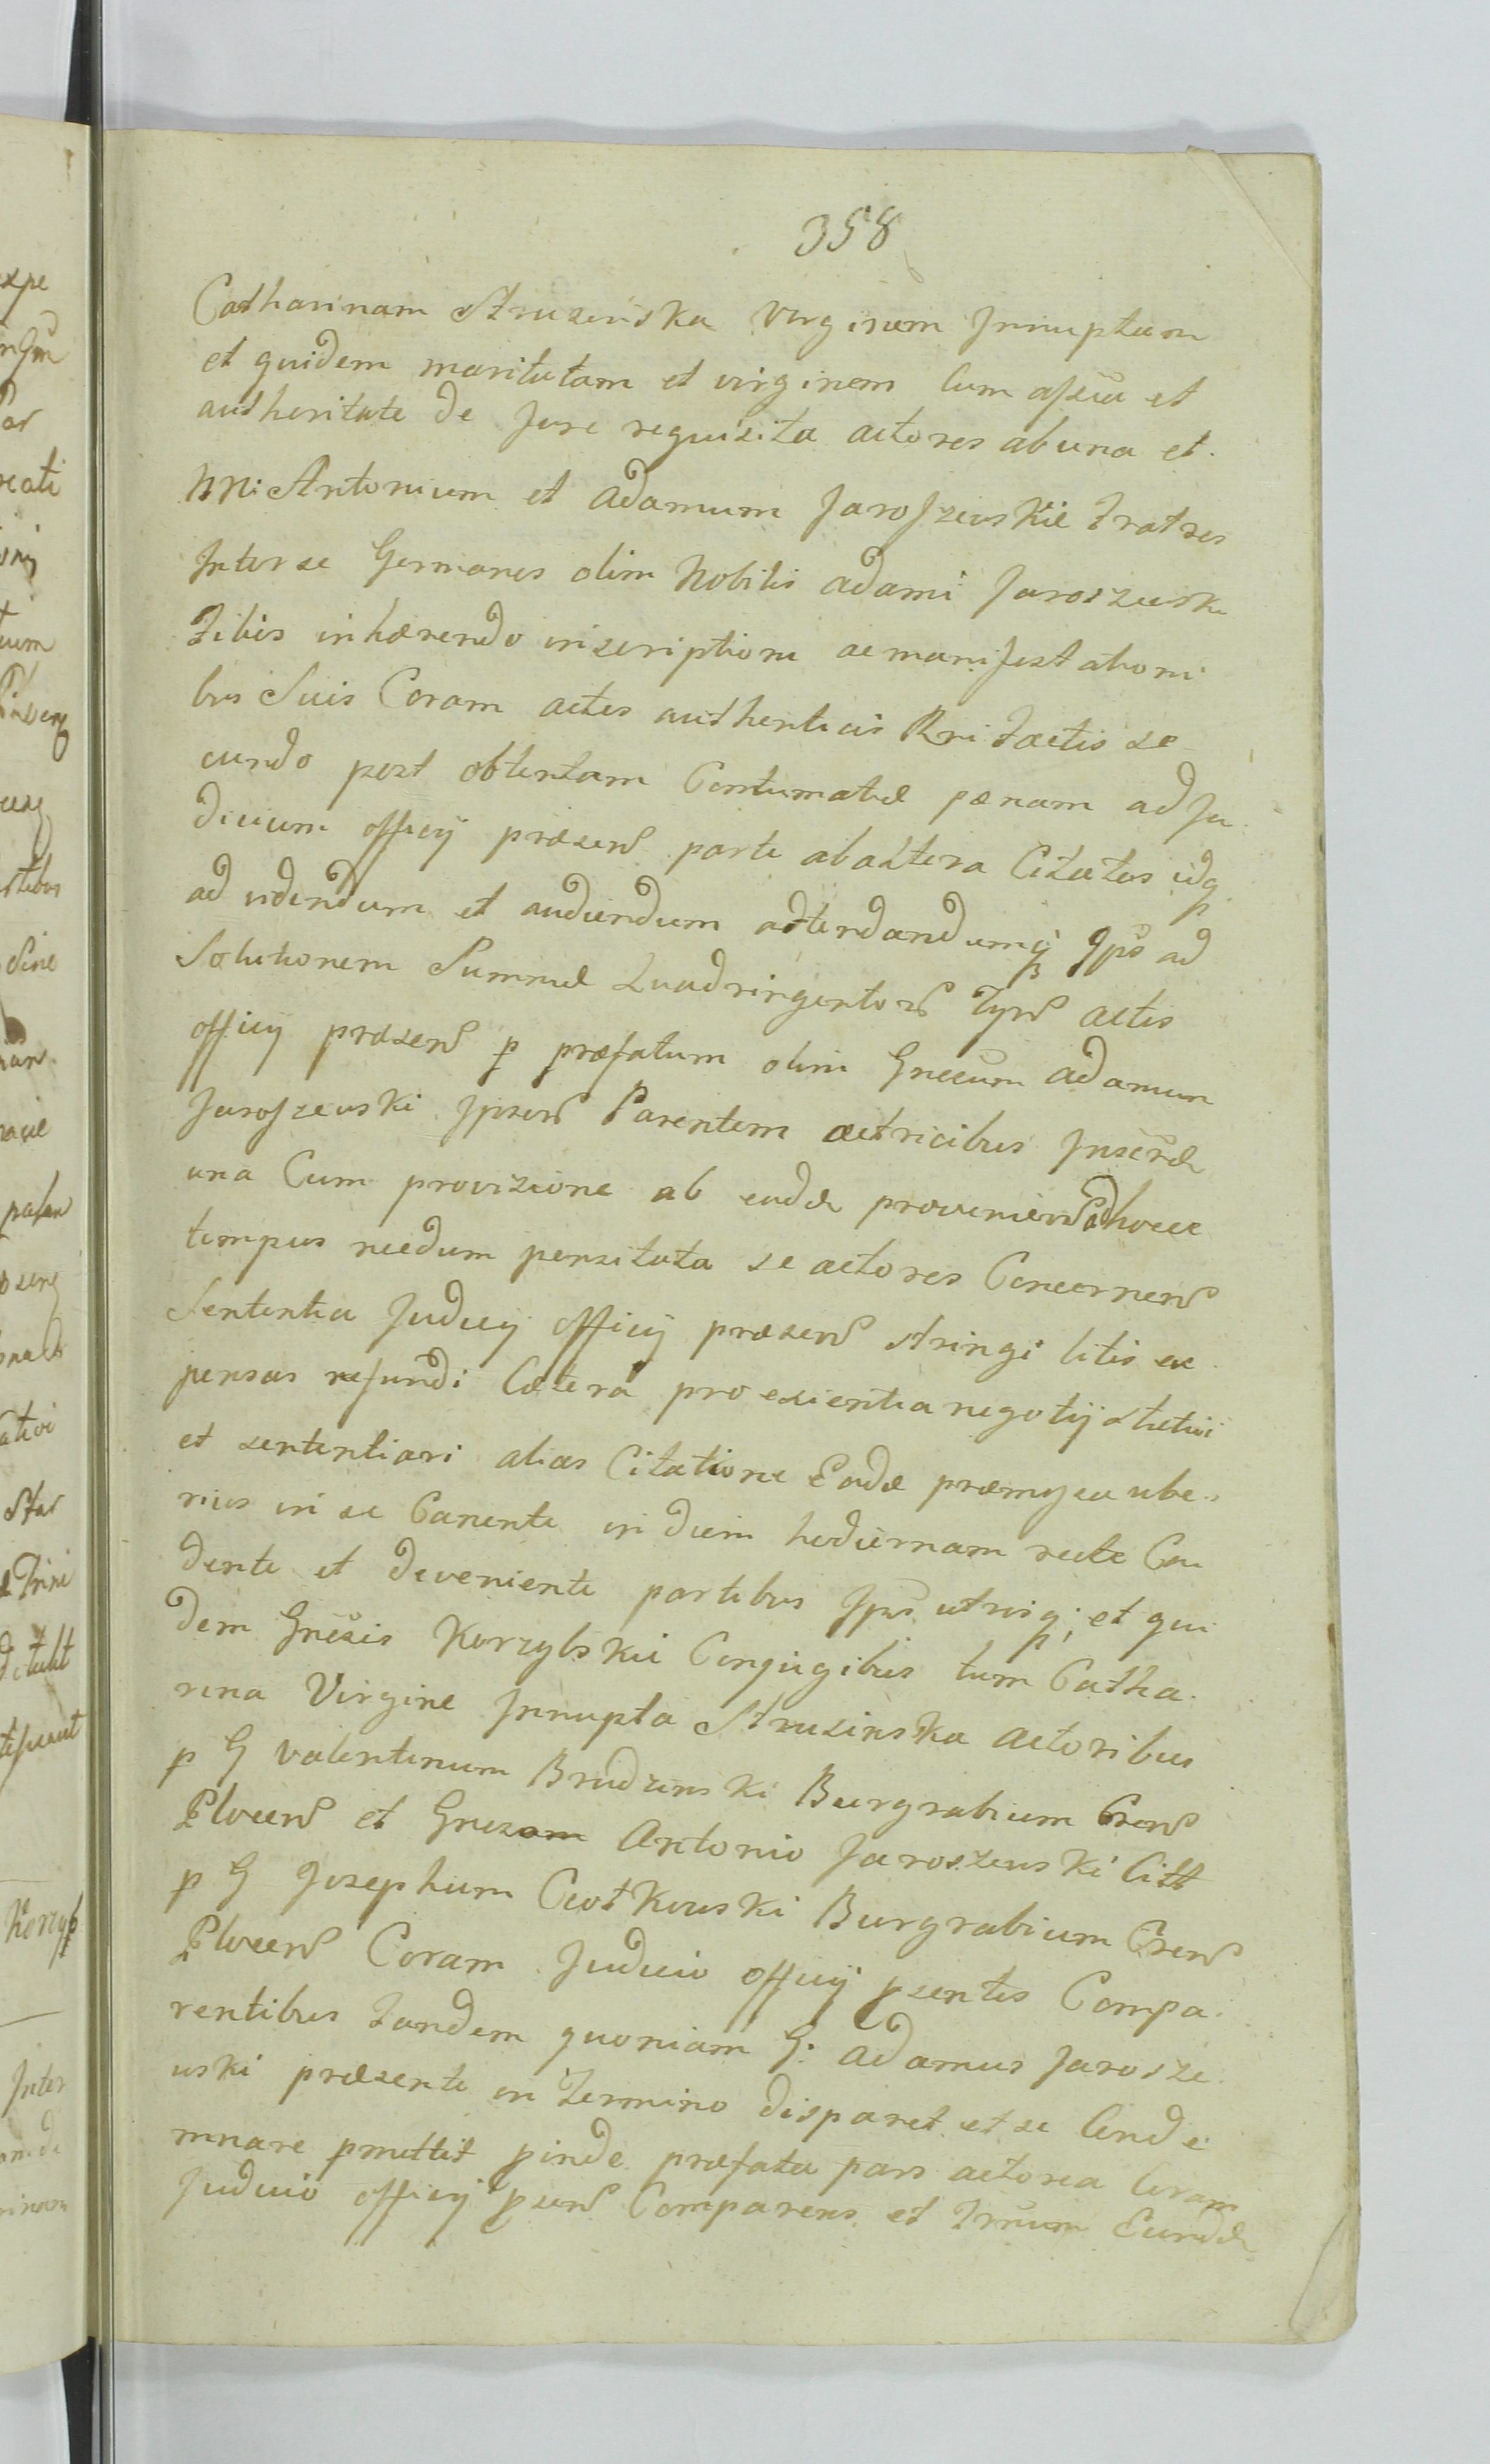 358
Catharinam Strusinska Virginem Innuptam
et quidem maritatam et virginem Cum assa et
authoritate de Jure requisita actores ab una et
NN: Antonium et Adamum Jaroszewskie Fratres
Inter se Germanos olim Nobilis Adami Jaroszewski
Filios inhærendo inscriptioni ac manifestationi
bus Suis Coram actis authenticis Rni factis se
cundo post obtentam Contumatiæ pænam ad Ju
dicium officij præsens parte ab altera Citatos idq
ad videndum et audiendum adtendandumq Ipos ad
Solutionem Summæ Quadringentors Tyns actis
officij præsens p præfatum olim Gnrosum Adamum
Jaroszewski Ipsors Parentem actricibus Inscræ
una Cum provisione ab eadæ proveniens adhocce
tempus necdum pensitata se actores Concernens
Sententia Judicij officij præsens stringi litis ex
pensas refundi Cætera pro exientia negotij statui
et sententiari alias Citatione Eadæ præmissa ube
rius in se Canente in diem hodiernam recte Ca
dente et deveniente partibus Ipis utrisq; et qui
dem Gnrosis Korzybskie Conjugibus tum Catha
rina Virgine Innupta Strusinska Actoribus
p G Valentinum Brudzinski Burgrabium Crens
Plocens et Gneroso Antonio Jaroszewski Citt
p G Josephum Ciotkowski Burgrabium Crens
Plocens Coram Judicio officij psentis Compa
rentibus Tandem quoniam G: Adamus Jarosze
wski præsente in Termino disparet et se Conde
mnare pmittit pinde præfata pars actorea Coram
Judicio officij psens Comparens et Trnum Eundæ